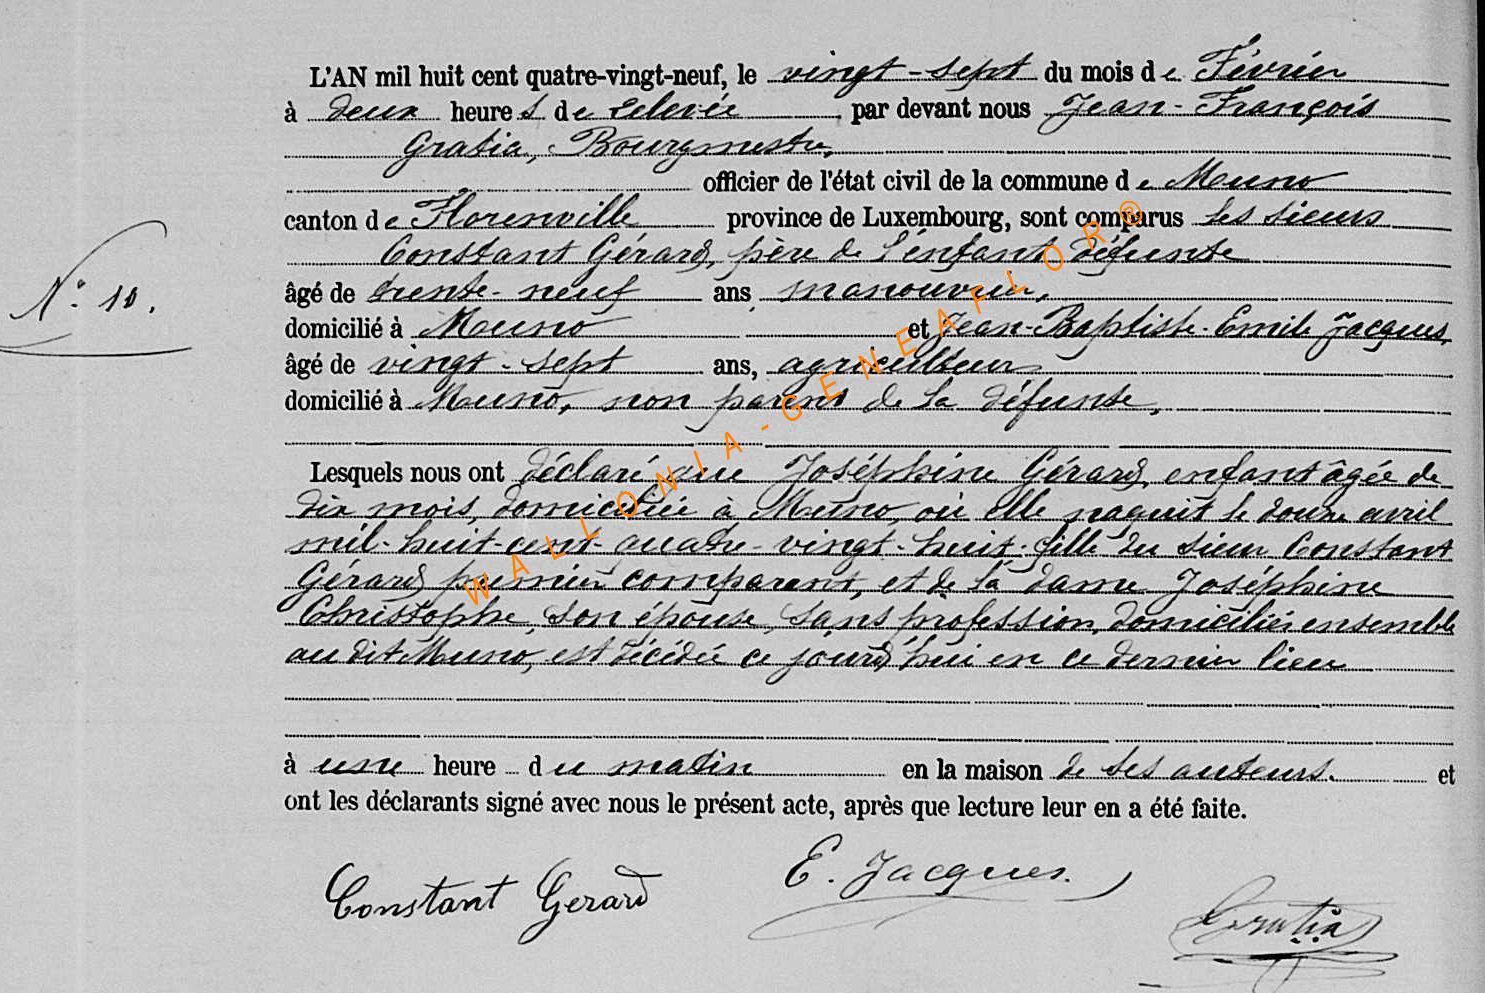 L'AN mil huit cent quatre-vingt-neuf, le vingt-sept du mois de Février
à deux heures de relevée, par devant nous Jean-François
Gratia, Bourgmestre,
officier de l'état civil de la commune de Muno
canton de Florenville province de Luxembourg, sont comparus les sieurs
Constant Gérard, père de l'enfant défunte
âgé de trente-neuf ans, manouvrier,
domicilié à Muno et Jean-Baptiste-Emile Jacques,
âgé de vingt-sept ans, agriculteur
domicilié à Muno, non parent de la défunte,
N° 10.
Lesquels nous ont déclaré que Joséphine Gérard, enfant âgée de
dix mois, domiciliée à Muno, où elle naquit le douze avril
mil-huit-cent-quatre-vingt-huit, fille du sieur Constant
Gérard premier comparant, et de la dame Joséphine
Christophe, son épouse, sans profession, domiciliés ensemble
au dit Muno, est décédée ce jourd'hui en ce dernier lieu
à une heure du matin en la maison de ses auteurs. et
ont les déclarants signé avec nous le présent acte, après que lecture leur en a été faite.
Constant Gerard
E. Jacques.
Gratia
WALLONIA-GENEAFLOR®